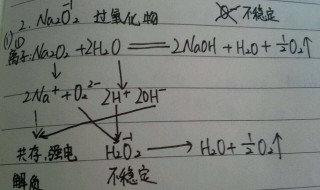 2. Na₂O₂⁻¹ 过氧化物 不稳定
(1) ① Na₂O₂ + 2H₂O ═ 2NaOH + H₂O + ½O₂↑
2Na⁺ + O₂²⁻ 2H⁺ 2OH⁻
共存,强电 H₂O₂⁻¹ → H₂O + ½O₂↑
解质 不稳定